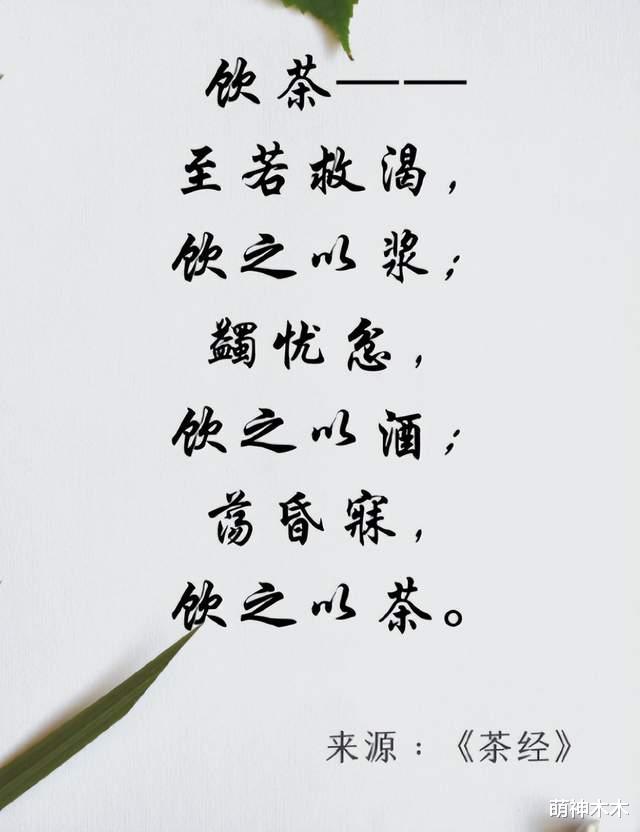 饮茶——
至若救渴，
饮之以浆；
蠲忧忿，
饮之以酒；
荡昏寐，
饮之以茶。
来源：《茶经》
萌神木木